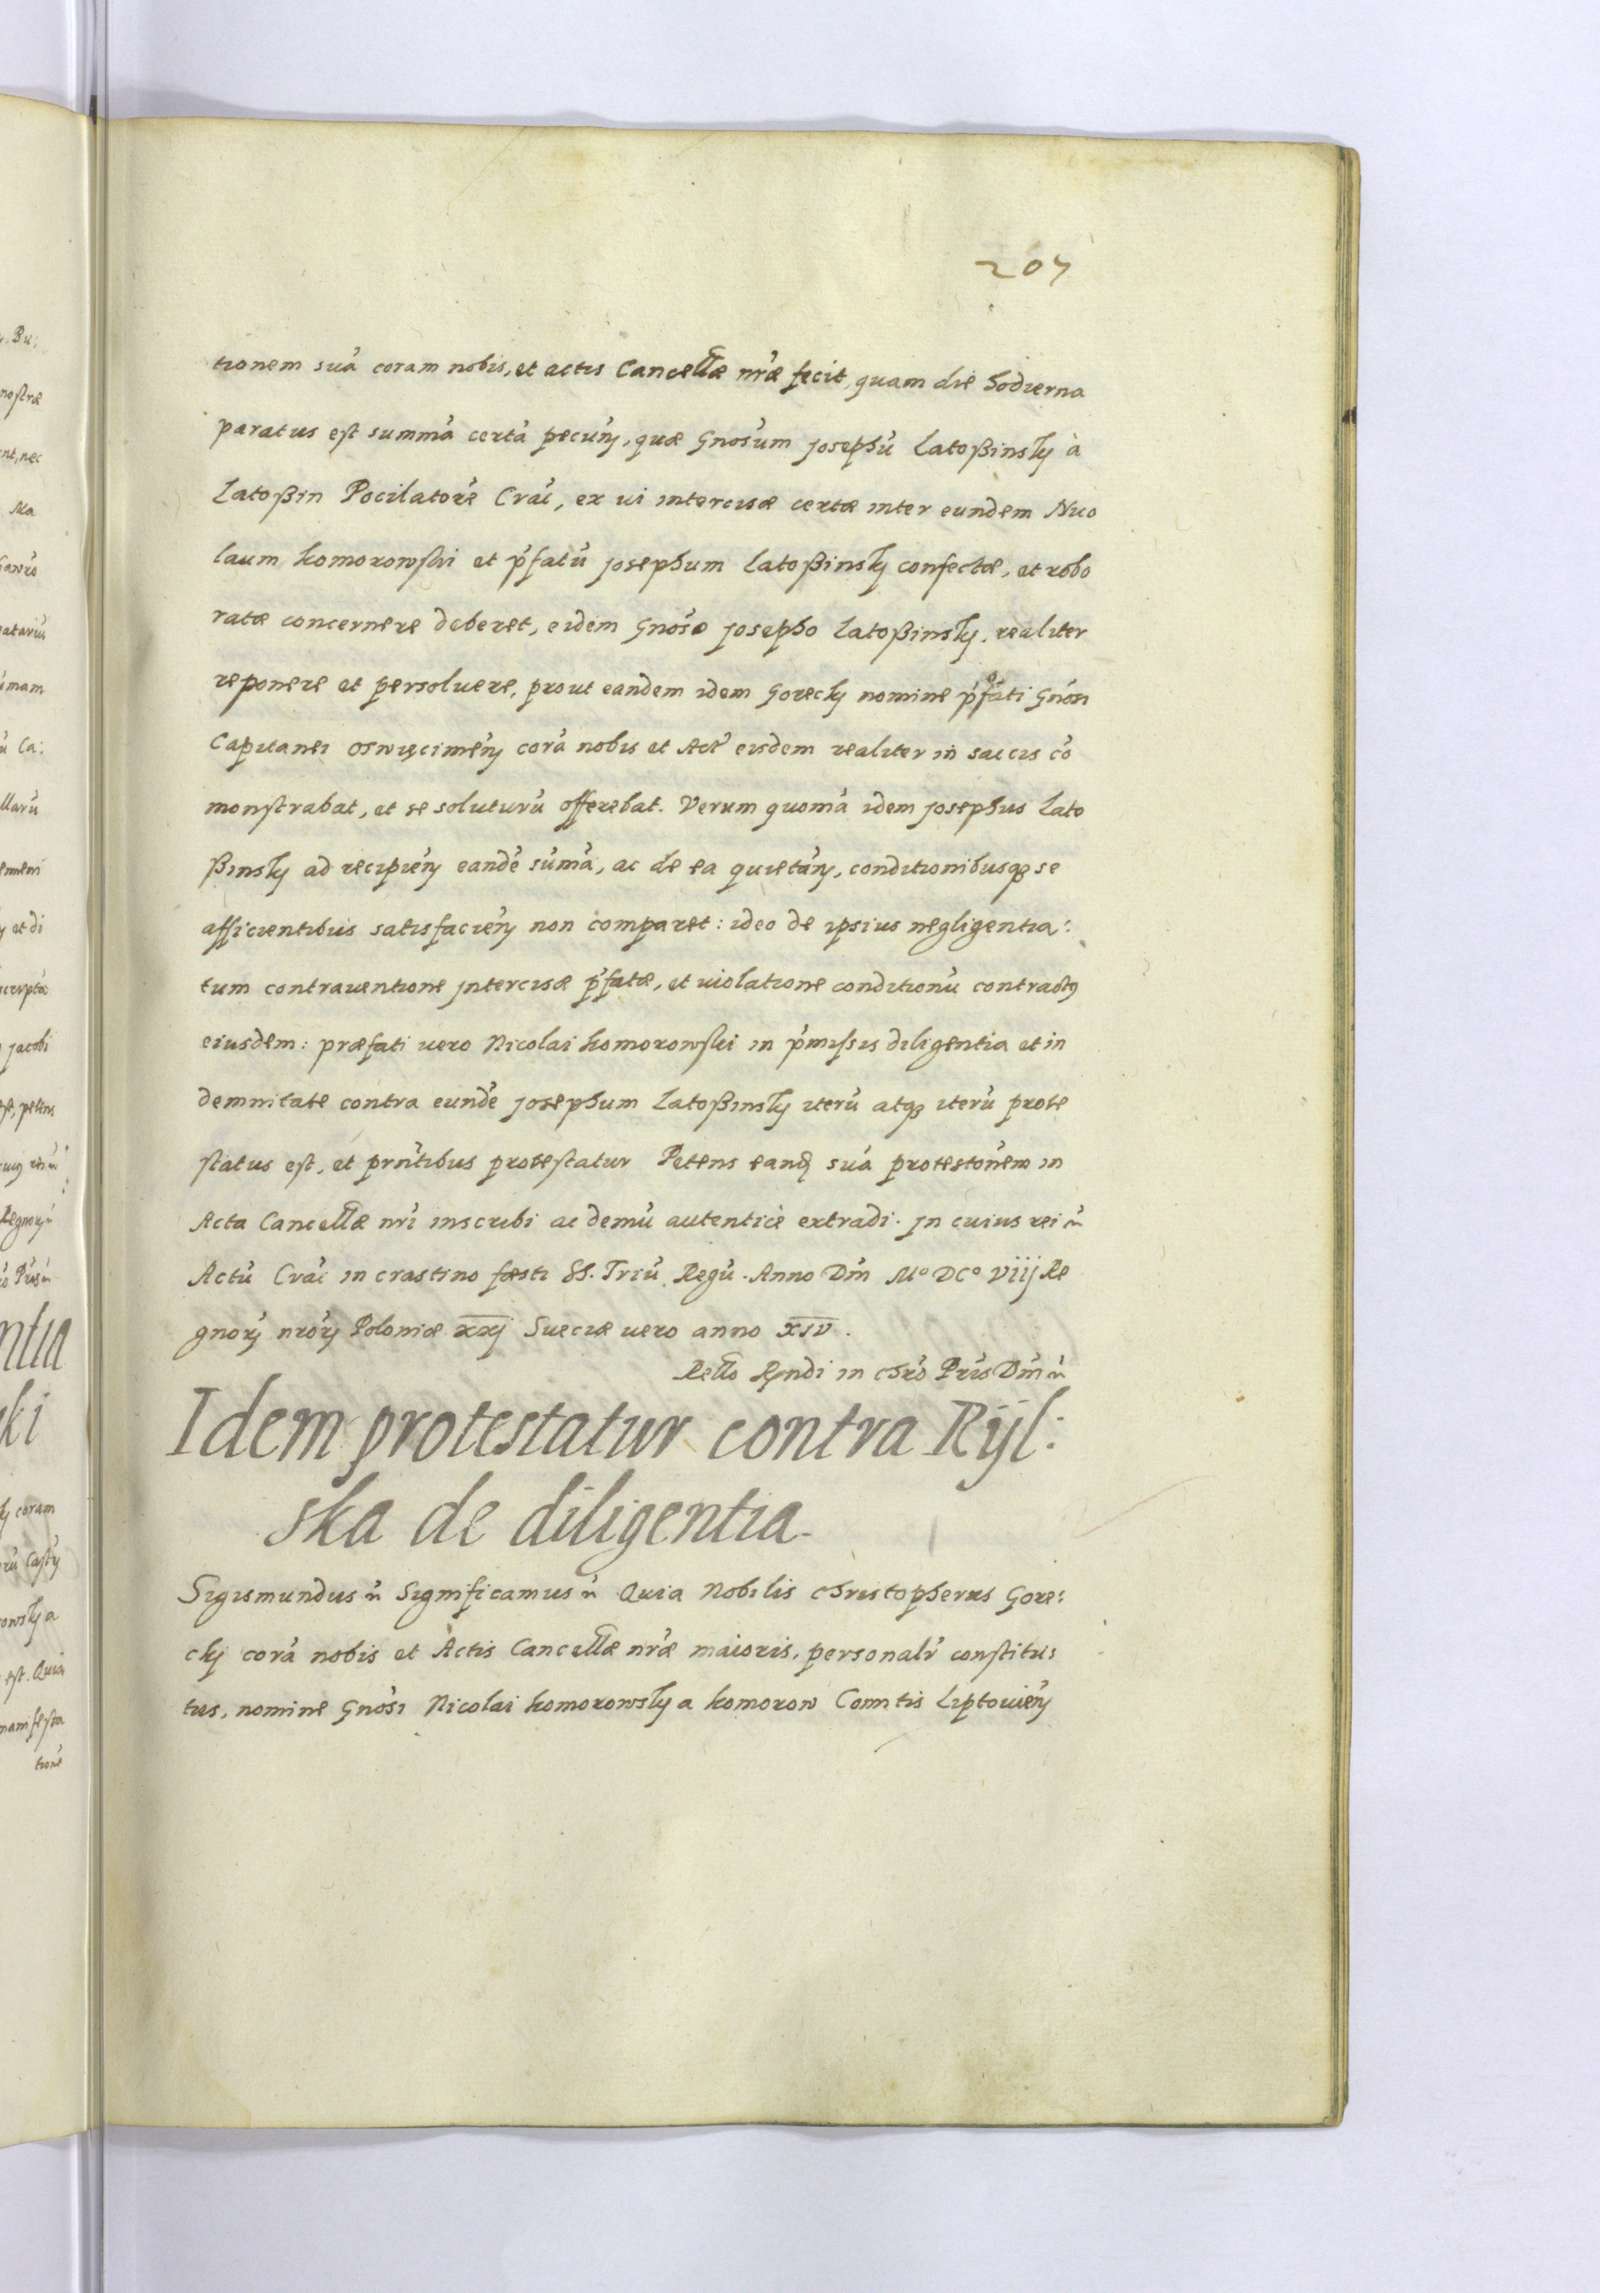 207
tionem suã coram nobis, et actis Cancellæ nr̃æ fecit, quam die hodierna
paratus est summã certã pecun̄, quæ Gnosum Josephũ Latoßinsky à
Latoßin Pocilatorẽ Crac̃, ex vi intercisæ certæ inter eundem Nico
laum Komorowski et p̃fatũ Josephum Latoßinsky confectæ, et robo
ratæ concernere deberet, eidem Gnoso Josepho Latoßinsky, realiter
reponere et persoluere, prout eandem idem Gorecky nomine p̃fati Gnosi
Capitanei Oswięcimen̄ corã nobis et Act̃ eisdem realiter in saccis cõ
monstrabat, et se soluturũ offerebat. Verum quoniã idem Josephus Lato
ßinsky ad recipien̄ eandẽ sũmã, ac de ea quietan̄, conditionibusq; se
afficientibus satisfacien̄ non comparet: ideo de ipsius negligentia:
tum contrauentione intercisæ p̃fatæ, et uiolatione conditionũ contractus
eiusdem: præfati uero Nicolai Komorowski in p̃missis diligentia et in
demnitate contra eundẽ Josephum Latoßinsky iterũ atq; iterũ prote
status est, et prñtibus protestatur Petens eand̃ suã protestonem in
Acta Cancellæ nr̃i inscribi ac demũ autenticè extradi. In cuius rei
Actũ Crac̃ in crastino fæsti SS. Triũ Regũ. Anno Dm̃ Mº DCº Viij Re
gnor̃ nr̃or̃ Poloniæ xxj Sueciæ uero anno xiv.
Rello Rndi in Chrõ Pr̃is Dm̃
Idem protestatur contra Rijl:
ska de diligentia.
Sigismundus Significamus Quia Nobilis Christopherus Gore:
cky corã nobis et Actis Cancellæ nr̃æ maioris, personalr̃ constitu:
tus, nomine Gnosi Nicolai Komorowsky a Komorow Comitis Liptouien̄